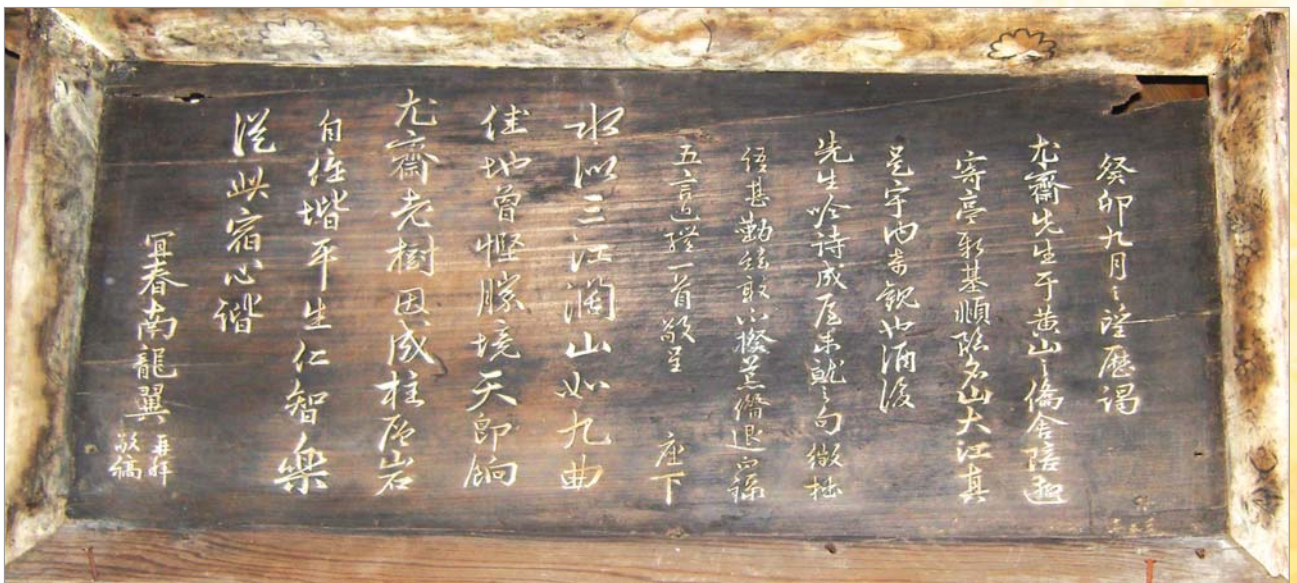 癸卯九月之望歷謁
尤齋先生于黃山之僑舍陪
寄亭新基順臨名山大江真
是宇內奇觀也酒後
先生吟詩成尾未就之句徵拙
甚勤敢不撥蕪僭退
五言近體一首敬呈 座下
水似三江濶山如九曲
佳地曾慳勝境天卽餉
尤齋老樹因成柱層岩
自作堦平生仁智樂
從此宿心諧
宜春南龍翼 再拜
敬稿